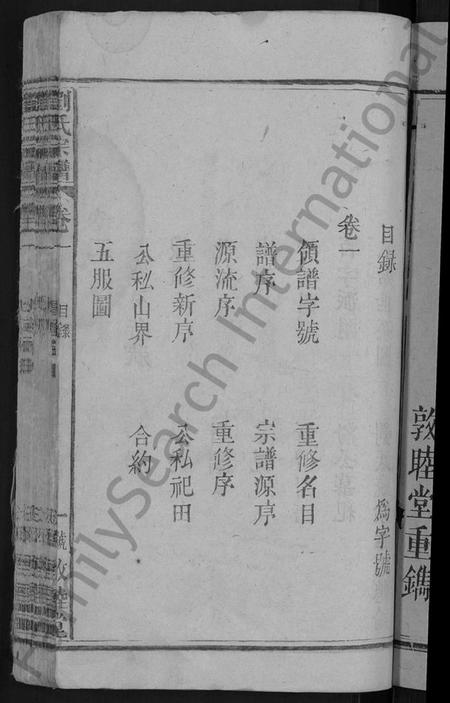 敦睦堂重鐫
目錄 為字號
卷一
領譜字號 重修名目
譜序 宗譜源序
源流序 重修序
重修新序 公私祀田
公私山界 合約
五服圖
劉氏宗譜 卷一 目錄 一號 敦睦堂
FamilySearch International